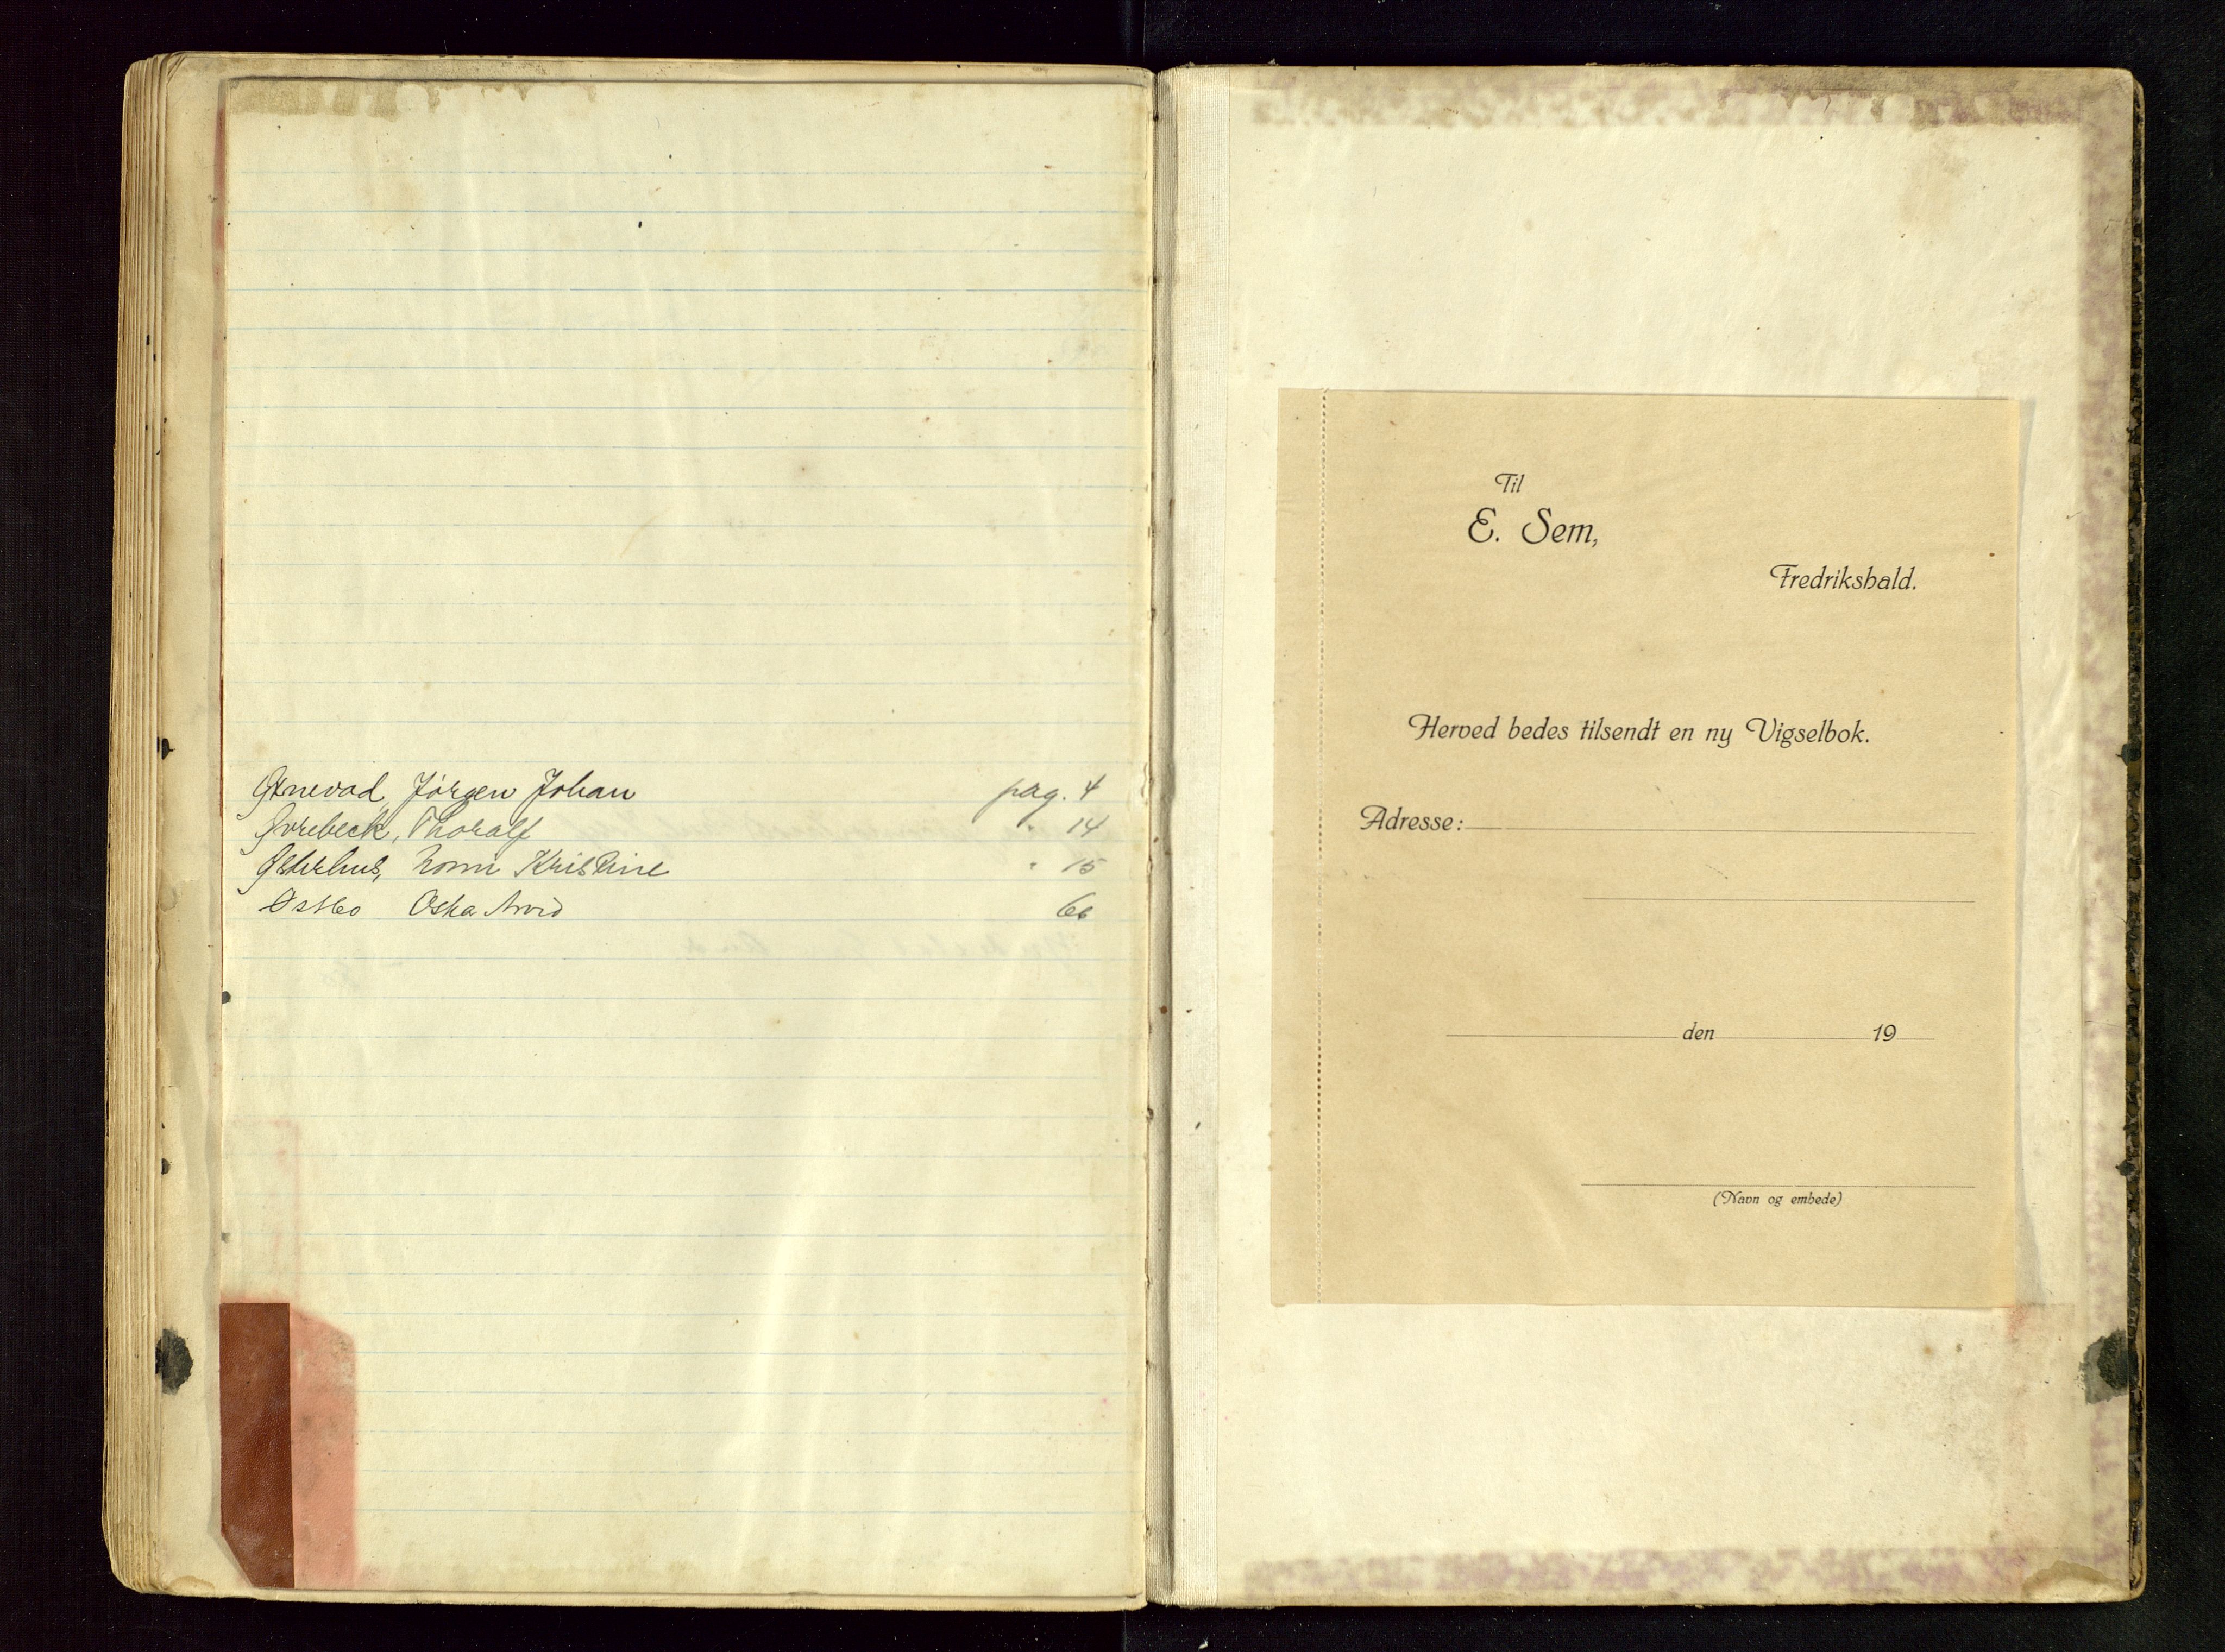 Ørnevad, Jörgen Johan pag. 4
Øvrebeck, Thoralf " 14
Østerhus, Kristine " 15
Østbo Oska Arvid 66
Til
E. Sem,
Fredrikshald.
Herved bedes tilsendt en ny Vigselbok.
Adresse:
den 19
(Navn og embede)